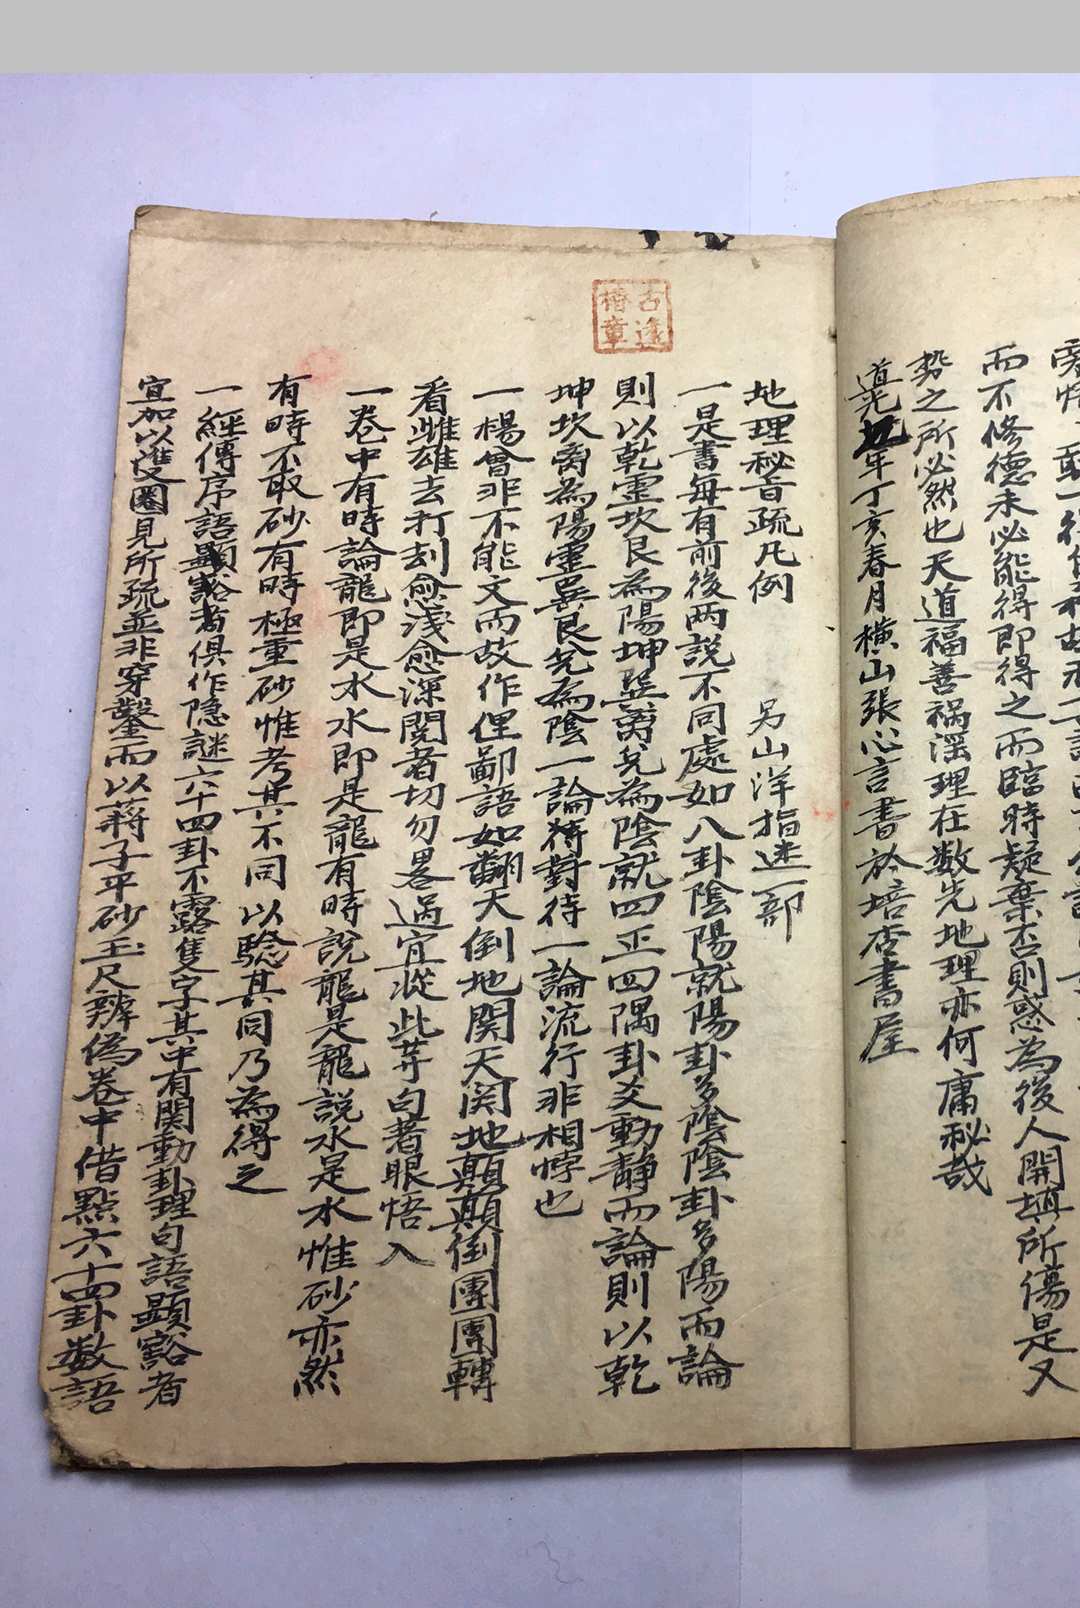 而不修德未必能得即得之而臨時疑棄否則惑為後人開填所傷是又
勢之所必然也天道福善祸淫理在数先地理亦何庸秘哉
道光年丁亥春月橫山張心言書於培杏書屋
古逸
椿章
地理秘旨疏凡例 另山洋指迷一部
一是書每有前後两說不同處如八卦陰陽就陽卦多陰陰卦多陽而論
則以乾震坎艮為陽坤巽离兌為陰就四正四隅卦爻動静而論則以乾
坤坎离為陽震巽艮兌為陰一論待對待一論流行非相悖也
一楊曾非不能文而故作俚鄙語如翻天倒地関天関地顛顛倒團團轉
看雌雄去打刦愈淺愈深閱者切勿畧過宜從此等句著眼悟入
一卷中有時論龍即是水水即是龍有時說龍是龍說水是水惟砂亦然
有時不取砂有時極重砂惟考其不同以驗其同乃為得之
一經傳序語顯豁者俱作隐謎六十四卦不露隻字其中有関動卦理句語顯豁者
宜加以雙圈見所疏並非穿鑿而以蔣子平砂玉尺辨偽卷中借點六十四卦数語